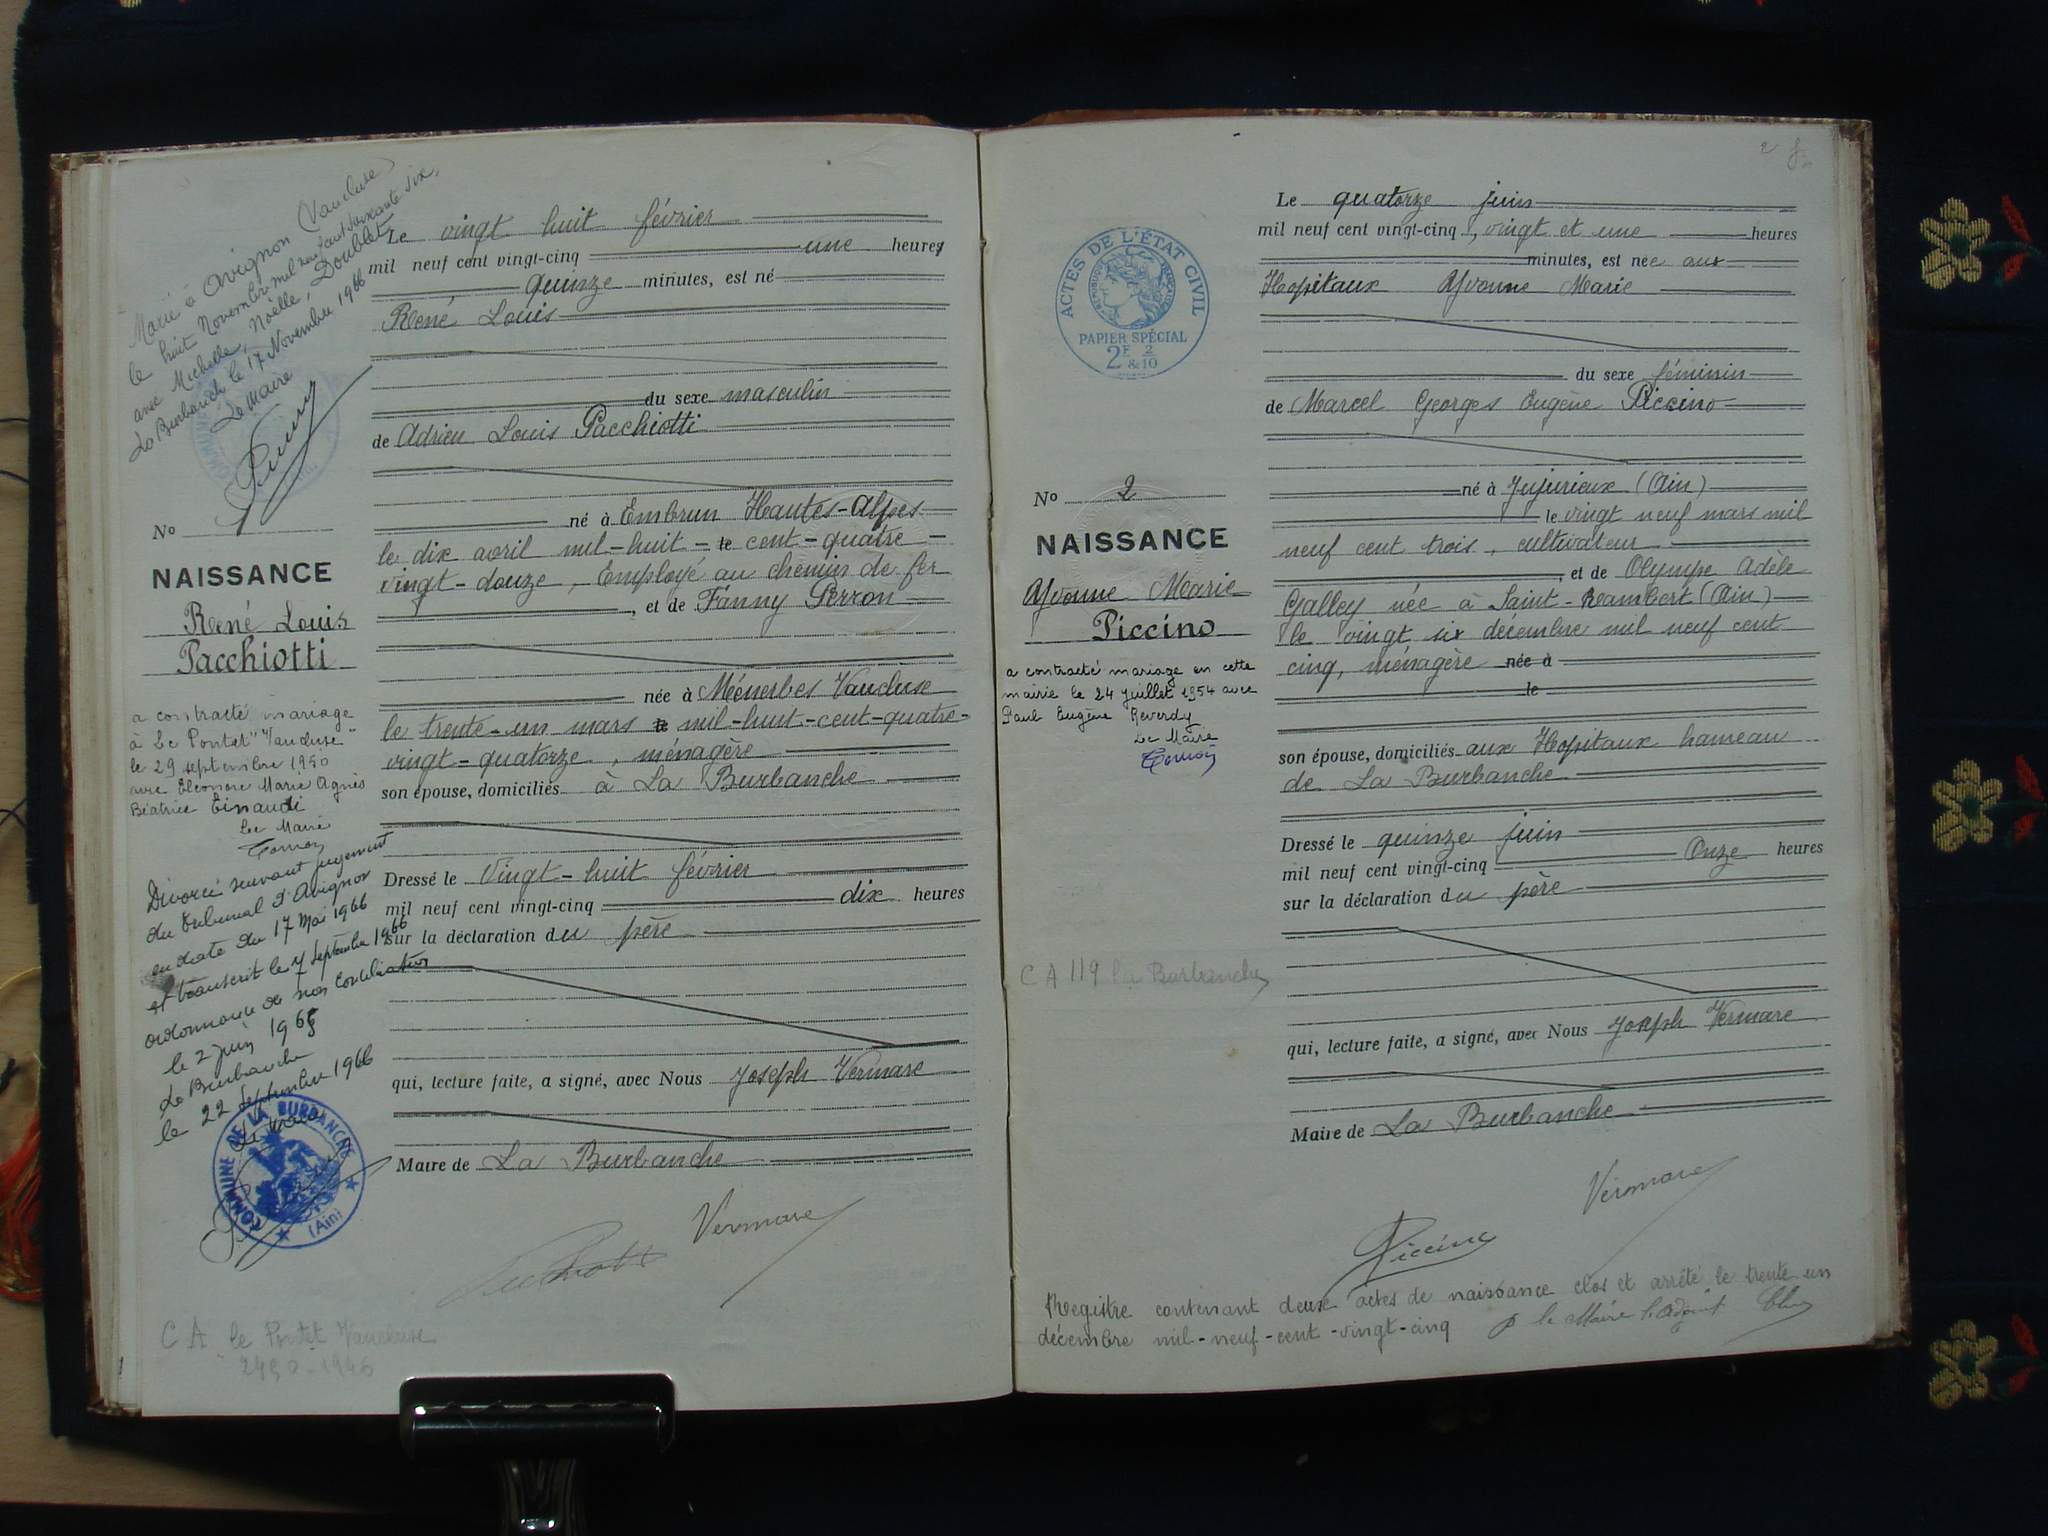 Marié à Avignon (Vaucluse)
le huit Novembre mil neuf cent soixante six,
avec Michelle, Noëlle, Doublet
La Burbanche le 17 Novembre 1966
Le Maire
No
NAISSANCE
René Louis
Pacchiotti
a contracté mariage
à Le Pontet "Vaucluse"
le 29 septembre 1950
avec Eléonore Marie Agnès
Béatrice Einaudi
Le Maire
Divorcé suivant jugement
du tribunal d'Avignon
en date du 17 Mai 1966
et transcrit le 7 septembre 1966
ordonnance de non conciliation
le 2 juin 1965
La Burbanche
le 22 septembre 1966
Le Maire
COMMUNE DE LA BURBANCHE
(Ain)
C A le Pontet Vaucluse
Le vingt huit février
mil neuf cent vingt-cinq une heures
quinze minutes, est né
René Louis
du sexe masculin
de Adrien Louis Pacchiotti
né à Embrun Hautes-Alpes
le dix avril mil-huit-le cent-quatre-
vingt-douze, Employé au chemin de fer
, et de Fanny Perron
née à Ménerbes Vaucluse
le trente-un mars le mil-huit-cent-quatre-
vingt-quatorze, ménagère
son épouse, domiciliés à La Burbanche
Dressé le Vingt-huit février
mil neuf cent vingt-cinq dix heures
sur la déclaration du père
qui, lecture faite, a signé, avec Nous Joseph Vermare
Maire de La Burbanche
Vermare
ACTES DE L'ÉTAT CIVIL
RÉPUBLIQUE FRANÇAISE
PAPIER SPÉCIAL
2F & 2/10
No 2
NAISSANCE
Yvonne Marie
Piccino
a contracté mariage en cette
mairie le 24 juillet 1954 avec
Paul Eugène Reverdy
Le Maire
C A 119 la Burbanche
2
Le quatorze juin
mil neuf cent vingt-cinq, vingt et une heures
minutes, est née aux
Hopitaux Yvonne Marie
du sexe féminin
de Marcel Georges Eugène Piccino
né à Jujurieux (Ain)
le vingt neuf mars mil
neuf cent trois, cultivateur
, et de Olympe Adèle
Galley née à Saint-Rambert (Ain)
le vingt six décembre mil neuf cent
cinq, ménagère née à
le
son épouse, domiciliés aux Hopitaux hameau
de La Burbanche
Dressé le quinze juin
mil neuf cent vingt-cinq Onze heures
sur la déclaration du père
qui, lecture faite, a signé, avec Nous Joseph Vermare
Maire de La Burbanche
Vermare
Piccino
Registre contenant deux actes de naissance clos et arrêté le trente un
décembre mil-neuf-cent-vingt-cinq p le Maire l'adjoint